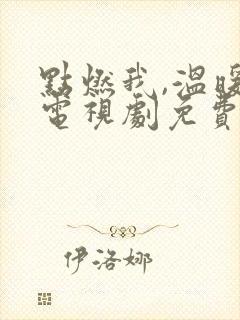 點燃我,溫暖
電視劇免費
伊洛娜